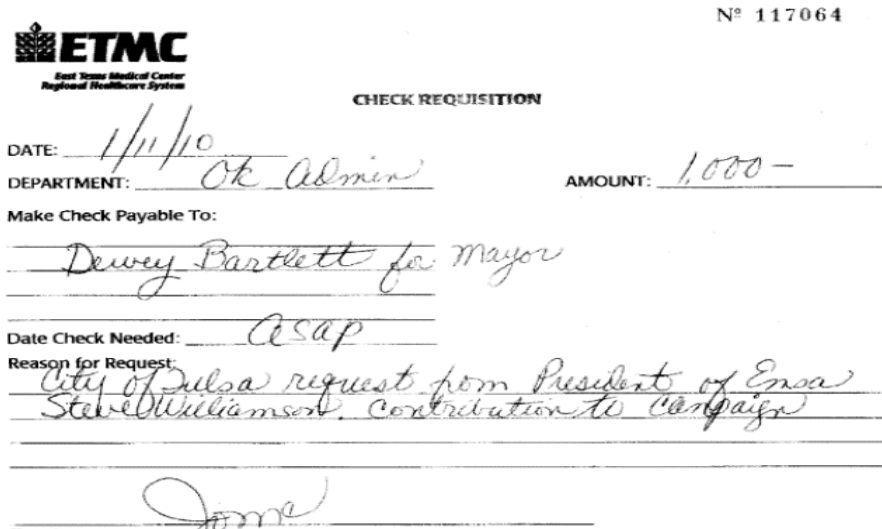 Nº 117064
ETMC
East Texas Medical Center
Regional Healthcare System
CHECK REQUISITION
DATE: 1/11/10
DEPARTMENT: Ok Admin AMOUNT: 1,000 –
Make Check Payable To:
Dewey Bartlett for Mayor
Date Check Needed: asap
Reason for Request:
City of Tulsa request from President of Emsa
Steve Williamson. Contribution to Campaign